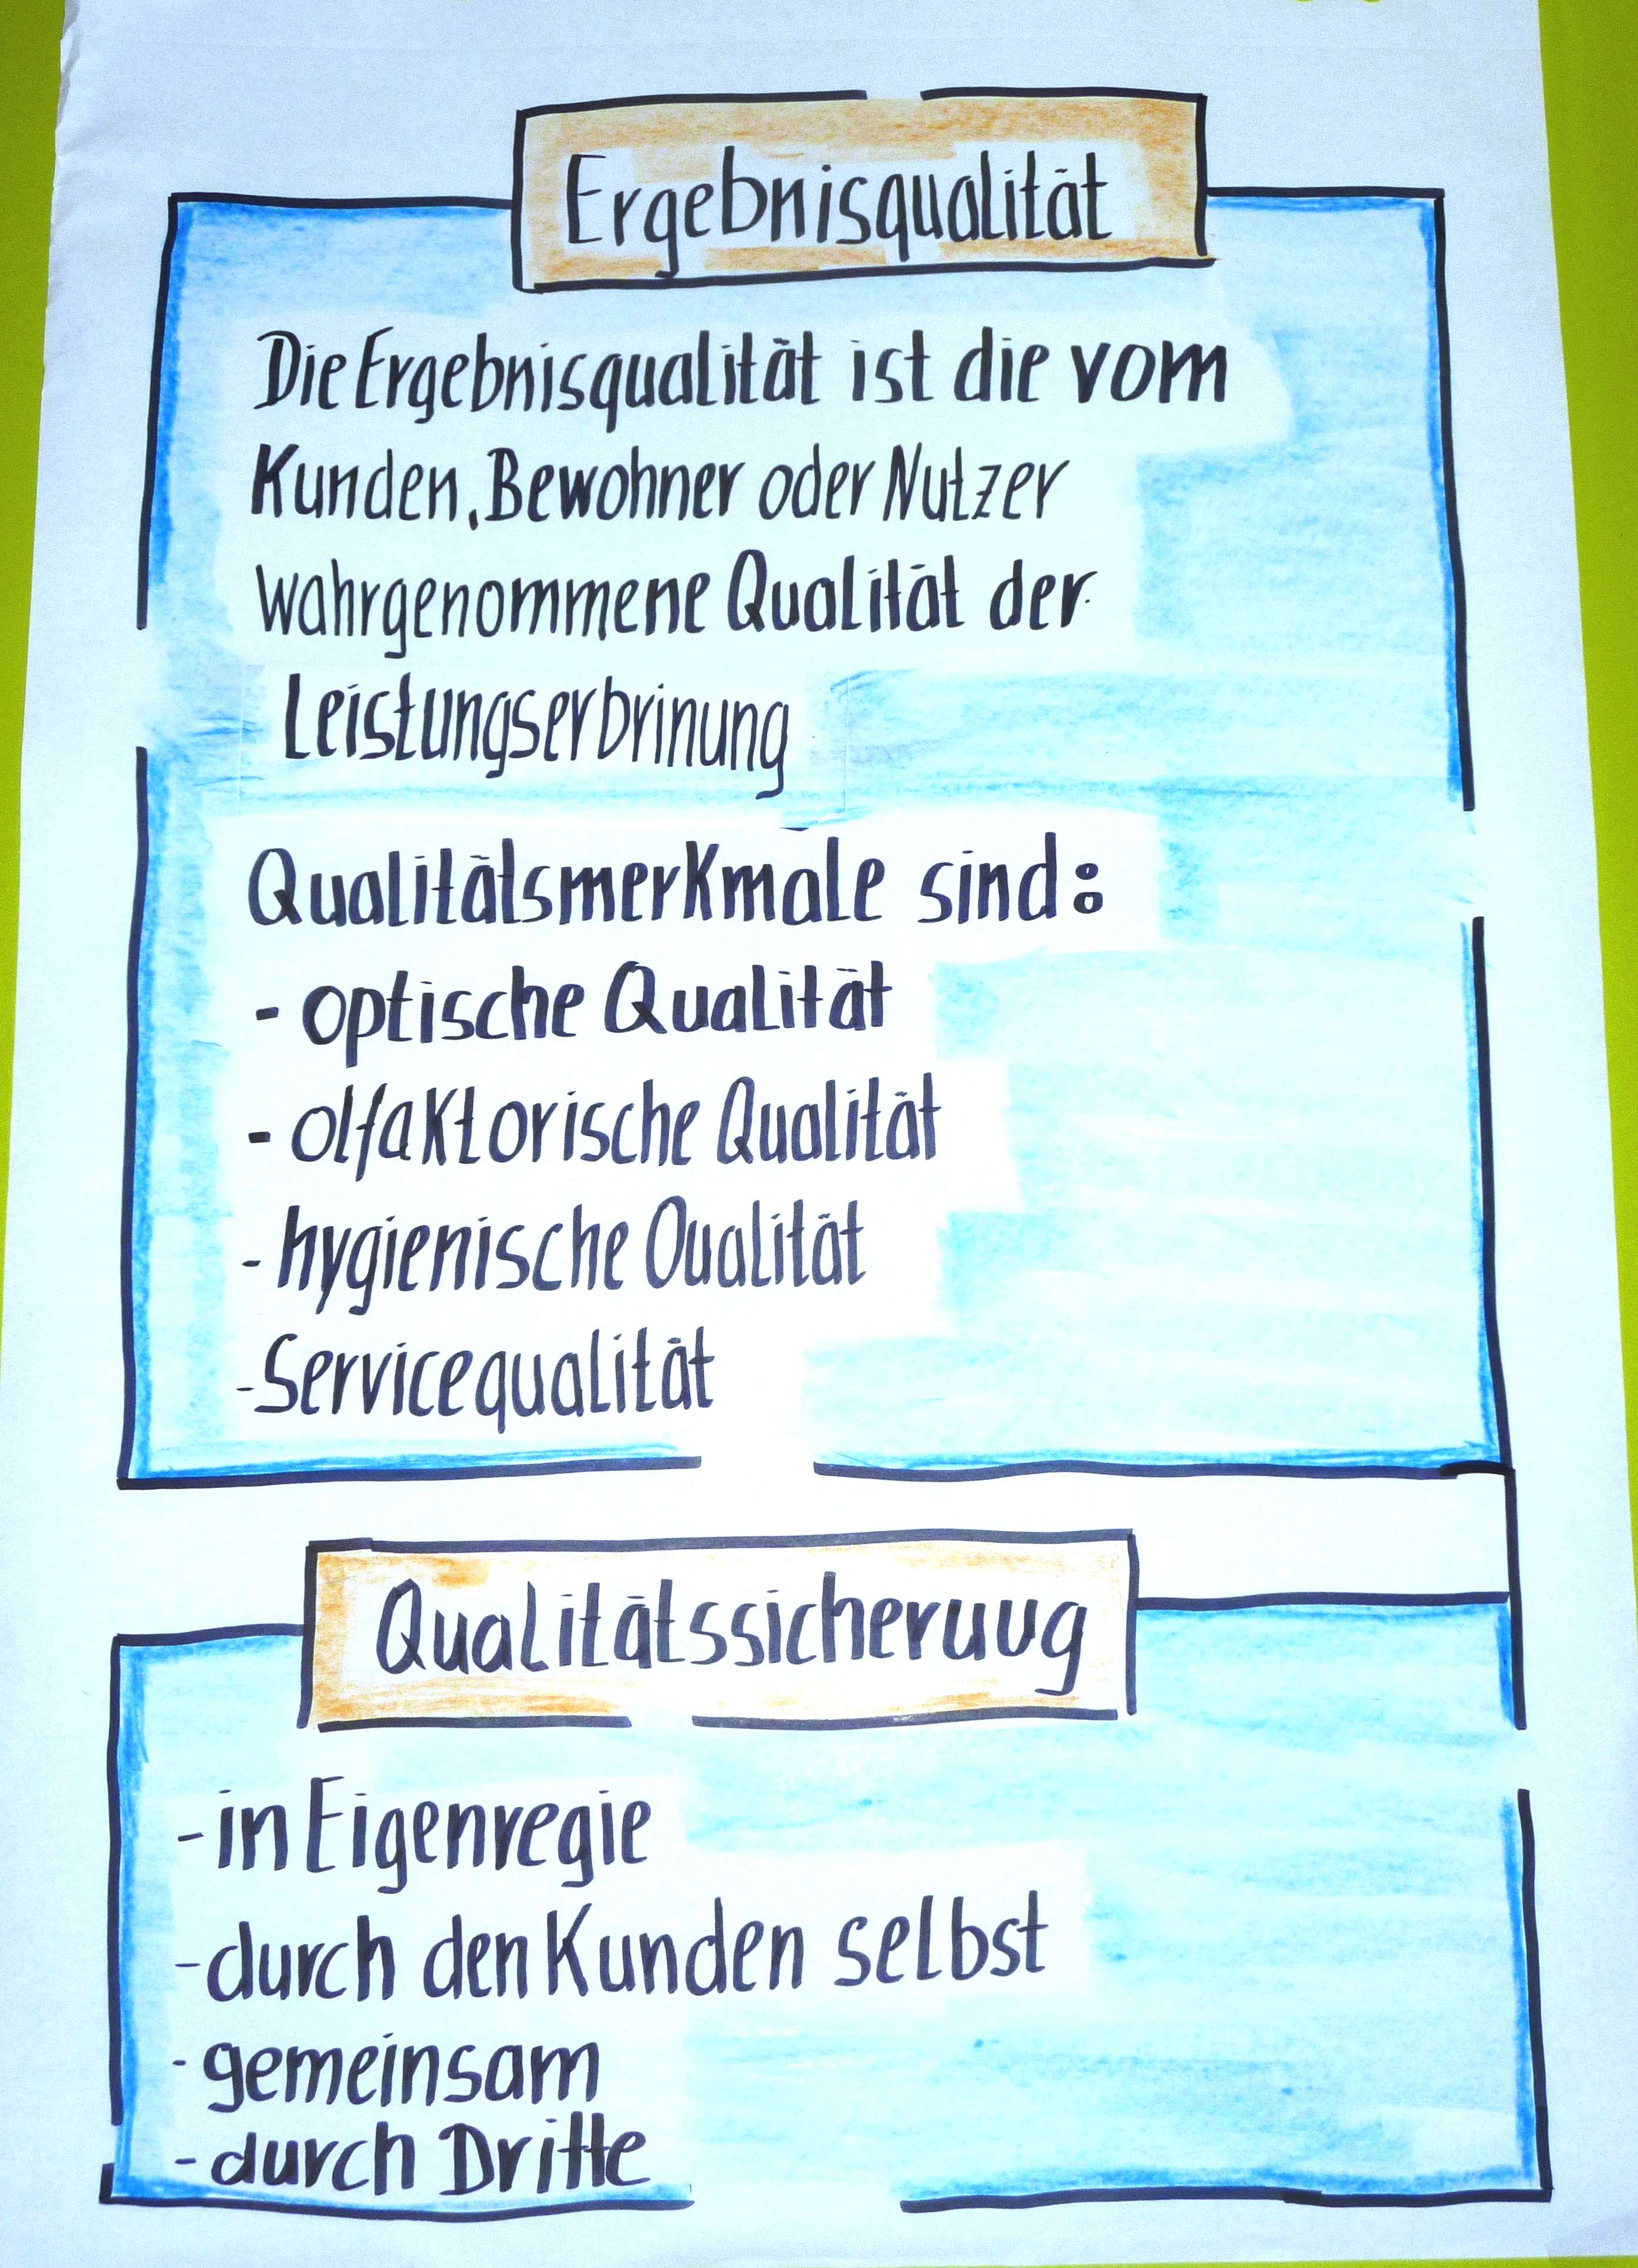 Ergebnisqualität
Die Ergebnisqualität ist die vom
Kunden, Bewohner oder Nutzer
wahrgenommene Qualität der
Leistungserbrinung
Qualitätsmerkmale sind:
- optische Qualität
- olfaktorische Qualität
- hygienische Qualität
- Servicequalität
Qualitätssicherung
- in Eigenregie
- durch den Kunden selbst
- gemeinsam
- durch Dritte